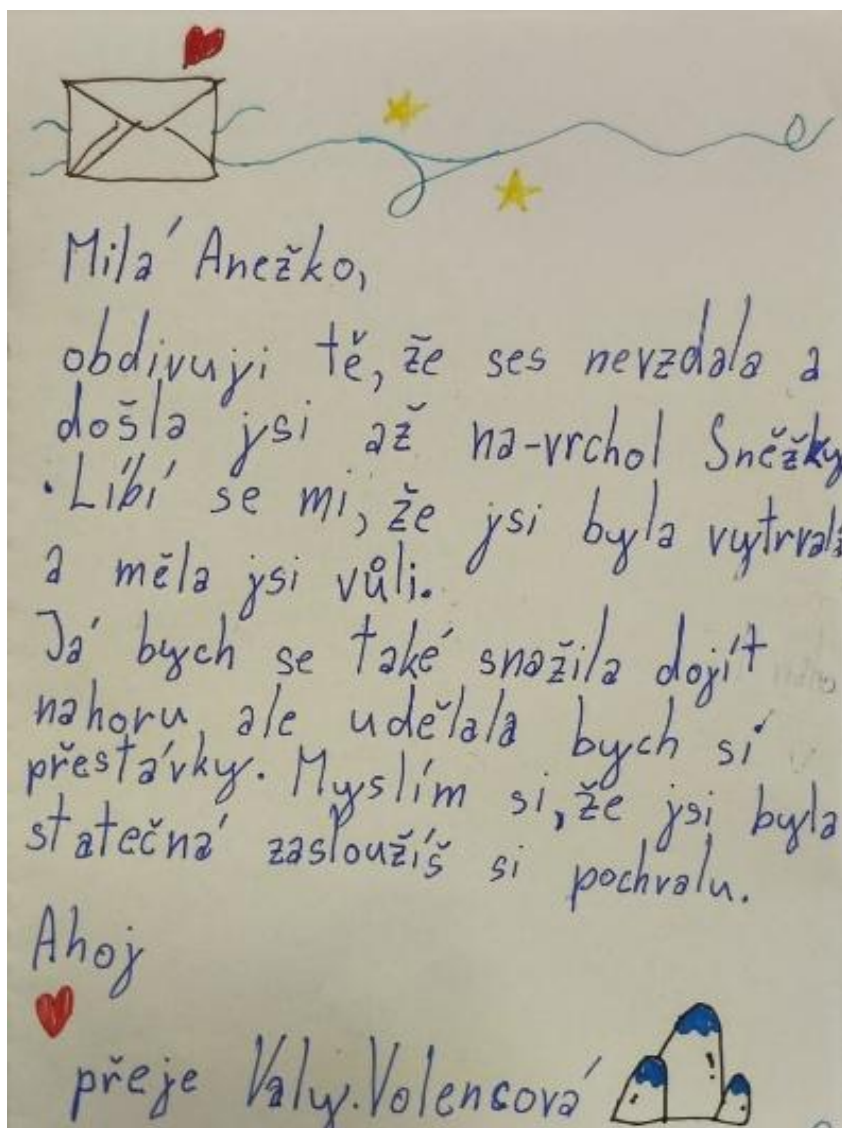 Milá Anežko,
obdivuji tě, že ses nevzdala a
došla jsi až na-vrchol Sněžky
. Líbí se mi, že jsi byla vytrvalá
a měla jsi vůli.
Já bych se také snažila dojít
nahoru, ale udělala bych si
přestávky. Myslím si, že jsi byla
statečná zasloužíš si pochvalu.
Ahoj
přeje Valy. Volencová